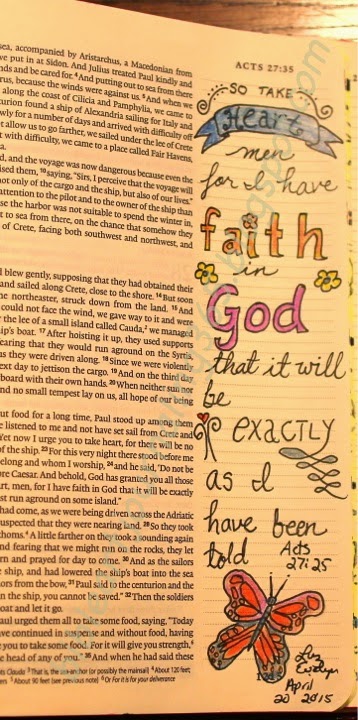 sea, accompanied by Aristarchus, a Macedonian from
we put in at Sidon. And Julius treated Paul kindly and
nds and be cared for. 4And putting out to sea from there
rus, because the winds were against us. 5And when we
along the coast of Cilicia and Pamphylia, we came to
turion found a ship of Alexandria sailing for Italy and
wly for a number of days and arrived with difficulty off
t allow us to go farther, we sailed under the lee of Crete
t with difficulty, we came to a place called Fair Havens,
a.
d, and the voyage was now dangerous because even the
ised them, 10saying, "Sirs, I perceive that the voyage will
not only of the cargo and the ship, but also of our lives."
attention to the pilot and to the owner of the ship than
se the harbor was not suitable to spend the winter in,
t to sea from there, on the chance that somehow they
of Crete, facing both southwest and northwest, and
d blew gently, supposing that they had obtained their
and sailed along Crete, close to the shore. 14But soon
he northeaster, struck down from the land. 15And
could not face the wind, we gave way to it and were
the lee of a small island called Cauda,2 we managed
ip's boat. 17After hoisting it up, they used supports
earing that they would run aground on the Syrtis,
us they were driven along. 18Since we were violently
ext day to jettison the cargo. 19And on the third day
board with their own hands. 20When neither sun nor
nd no small tempest lay on us, all hope of our being
out food for a long time, Paul stood up among them
e listened to me and not have set sail from Crete and
Yet now I urge you to take heart, for there will be no
of the ship. 23For this very night there stood before me
elong and whom I worship, 24and he said, 'Do not be
ore Caesar. And behold, God has granted you all those
rt, men, for I have faith in God that it will be exactly
st run aground on some island."
had come, as we were being driven across the Adriatic
uspected that they were nearing land. 28So they took
thoms.4 A little farther on they took a sounding again
and fearing that we might run on the rocks, they let
rn and prayed for day to come. 30And as the sailors
e ship, and had lowered the ship's boat into the sea
ors from the bow, 31Paul said to the centurion and the
n the ship, you cannot be saved." 32Then the soldiers
oat and let it go.
aul urged them all to take some food, saying, "Today
ve continued in suspense and without food, having
you to take some food. For it will give you strength,6
e head of any of you." 35And when he had said these
ots Clauda 3 That is, the sea-anchor (or possibly the mainsail) 4 About 120 feet;
5 About 90 feet (see previous note) 6 Or For it is for your deliverance
ACTS 27:35
SO TAKE
Heart
men
for I have
faith
in
God
that it will
be
EXACTLY
as I
have been
told Acts
27:25
April
20 2015